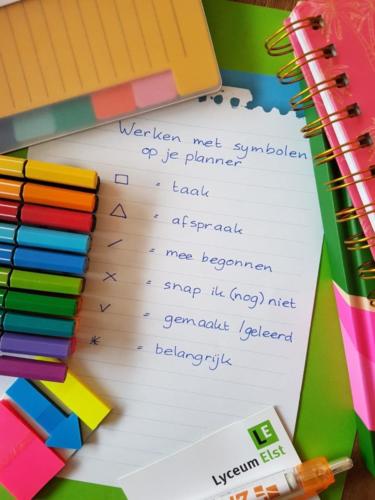 Werken met symbolen
op je planner
□ = taak
△ = afspraak
/ = mee begonnen
x = snap ik (nog) niet
v = gemaakt /geleerd
* = belangrijk
LE
Lyceum Elst